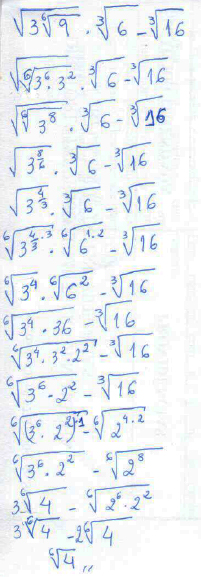 √(3 ⁶√9) · ³√6 − ³√16
√(⁶√(3⁶·3²)) · ³√6 − ³√16
√(⁶√(3⁸)) · ³√6 − ³√16
√(3^(8/6)) · ³√6 − ³√16
√(3^(4/3)) · ³√6 − ³√16
⁶√(3^(4/3·3)) · ⁶√(6^(1·2)) − ³√16
⁶√(3⁴) · ⁶√(6²) − ³√16
⁶√(3⁴·36) − ³√16
⁶√(3⁴·3²·2²) − ³√16
⁶√(3⁶·2²) − ³√16
⁶√((3⁶·2²)¹) − ⁶√(2^(4·2))
⁶√(3⁶·2²) − ⁶√(2⁸)
3 ⁶√4 − ⁶√(2⁶·2²)
3 ⁶√4 − 2 ⁶√4
⁶√4 ,,